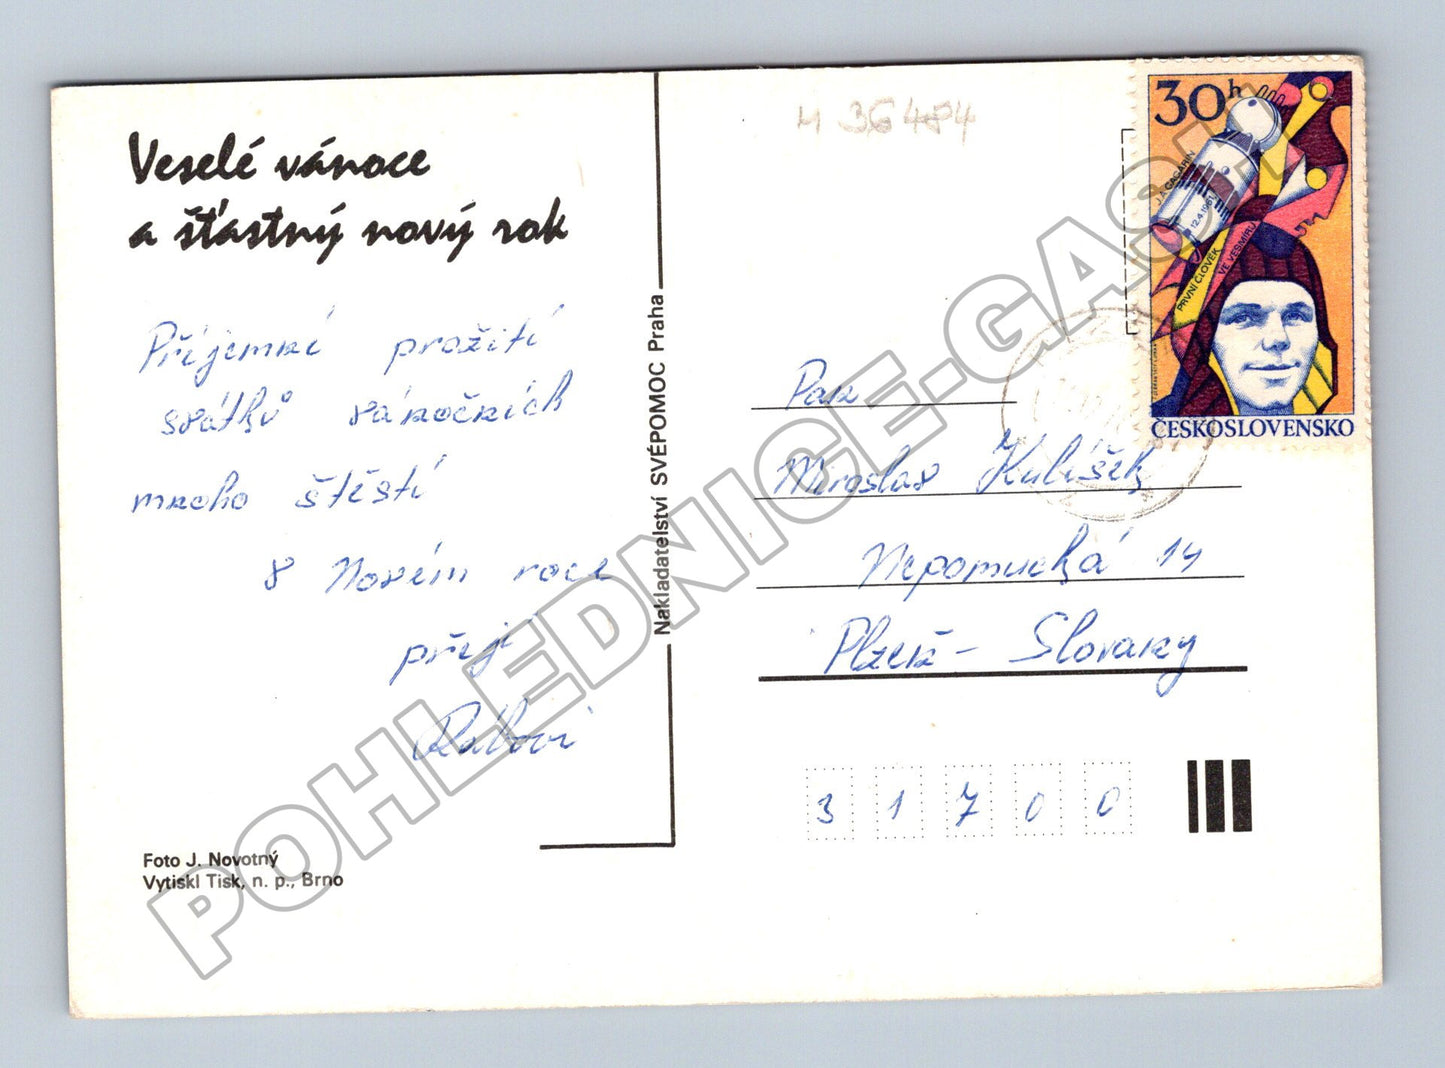 Veselé vánoce
a šťastný nový rok
Příjemné prožití
svátků vánočních
mnoho štěstí
v Novém roce
přejí
Foto J. Novotný
Vytiskl Tisk, n. p., Brno
Nakladatelství SVÉPOMOC Praha
M 36484
30h
J. A. GAGARIN
12.4.1961
PRVNÍ ČLOVĚK
VE VESMÍRU
ČESKOSLOVENSKO
Pan
Miroslav Kulíšek
Nepomucká 14
Plzeň - Slovany
31700
POHLEDNICE-GASH